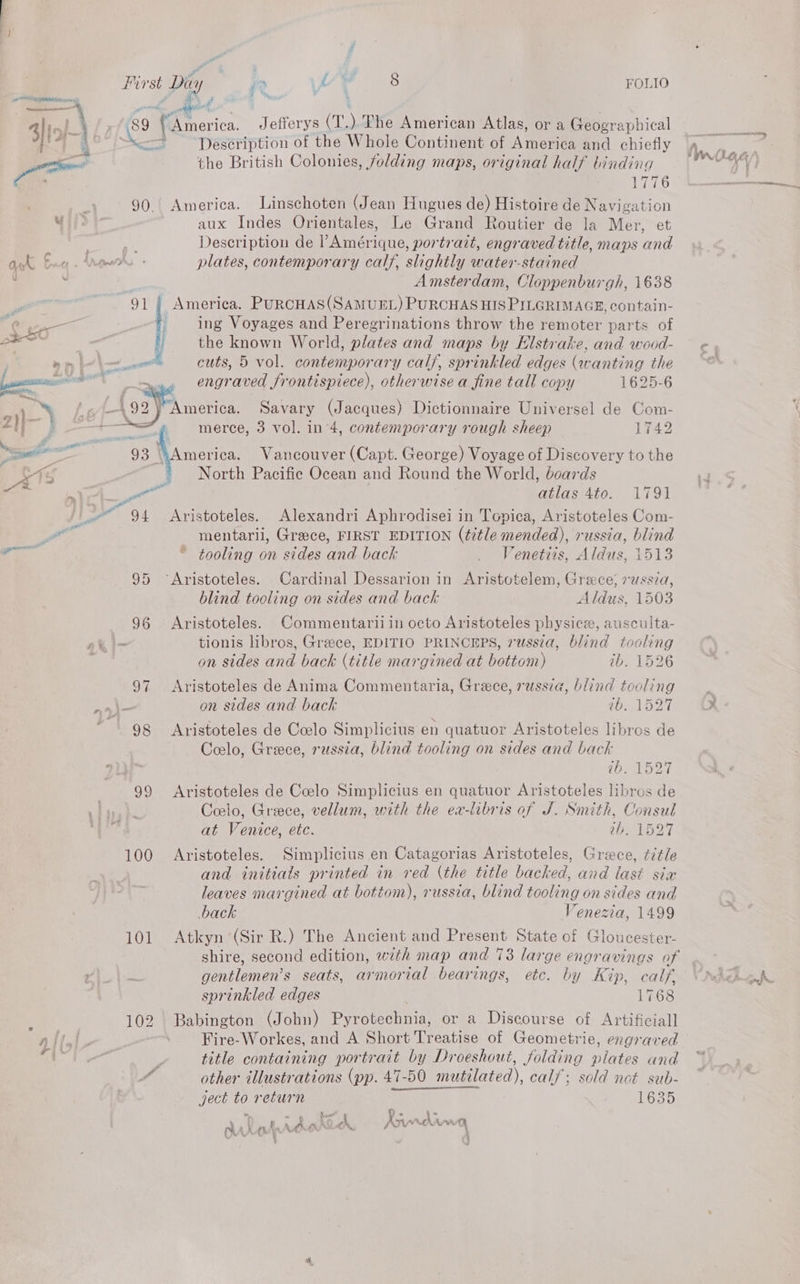 First Day 8 FOLIO
89 America. Jefferys (T.) The American Atlas, or a Geographical
Description of the Whole Continent of America and chiefly
the British Colonies, folding maps, original half binding
1776
90. America. Linschoten (Jean Hugues de) Histoire de Navigation
aux Indes Orientales, Le Grand Routier de la Mer, et
Description de l'Amérique, portrait, engraved title, maps and
plates, contemporary calf, slightly water-stained
Amsterdam, Cloppenburgh, 1638
91 America. PURCHAS (SAMUEL) PURCHAS HIS PILGRIMAGE, contain-
ing Voyages and Peregrinations throw the remoter parts of
the known World, plates and maps by Elstrake, and wood-
cuts, 5 vol. contemporary calf, sprinkled edges (wanting the
engraved frontispiece), otherwise a fine tall copy 1625-6
92 America. Savary (Jacques) Dictionnaire Universel de Com-
merce, 3 vol. in 4, contemporary rough sheep 1742
93 America. Vancouver (Capt. George) Voyage of Discovery to the
North Pacific Ocean and Round the World, boards
atlas 4to. 1791
94 Aristoteles. Alexandri Aphrodisei in Topica, Aristoteles Com-
mentarii, Græce, FIRST EDITION (title mended), russia, blind
tooling on sides and back Venetiis, Aldus, 1513
95 Aristoteles. Cardinal Dessarion in Aristotelem, Græce, russia,
blind tooling on sides and back Aldus, 1503
96 Aristoteles. Commentarii in octo Aristoteles physicæ, ausculta-
tionis libros, Græce, EDITIO PRINCEPS, russia, blind tooling
on sides and back (title margined at bottom) ib. 1526
97 Aristoteles de Anima Commentaria, Græce, russia, blind tooling
on sides and back ib. 1527
98 Aristoteles de Cœlo Simplicius en quatuor Aristoteles libros de
Cœlo, Græce, russia, blind tooling on sides and back
ib. 1527
99 Aristoteles de Cœlo Simplicius en quatuor Aristoteles libros de
Cœlo, Græce, vellum, with the ex-libris of J. Smith, Consul
at Venice, etc. ib. 1527
100 Aristoteles. Simplicius en Catagorias Aristoteles, Græce, title
and initials printed in red (the title backed, and last six
leaves margined at bottom), russia, blind tooling on sides and
back Venezia, 1499
101 Atkyn (Sir R.) The Ancient and Present State of Gloucester-
shire, second edition, with map and 73 large engravings of
gentlemen's seats, armorial bearings, etc. by Kip, calf,
sprinkled edges 1768
102 Babington (John) Pyrotechnia, or a Discourse of Artificiall
Fire-Workes, and A Short Treatise of Geometrie, engraved
title containing portrait by Droeshout, folding plates and
other illustrations (pp. 47-50 mutilated), calf; sold not sub-
ject to return 1635